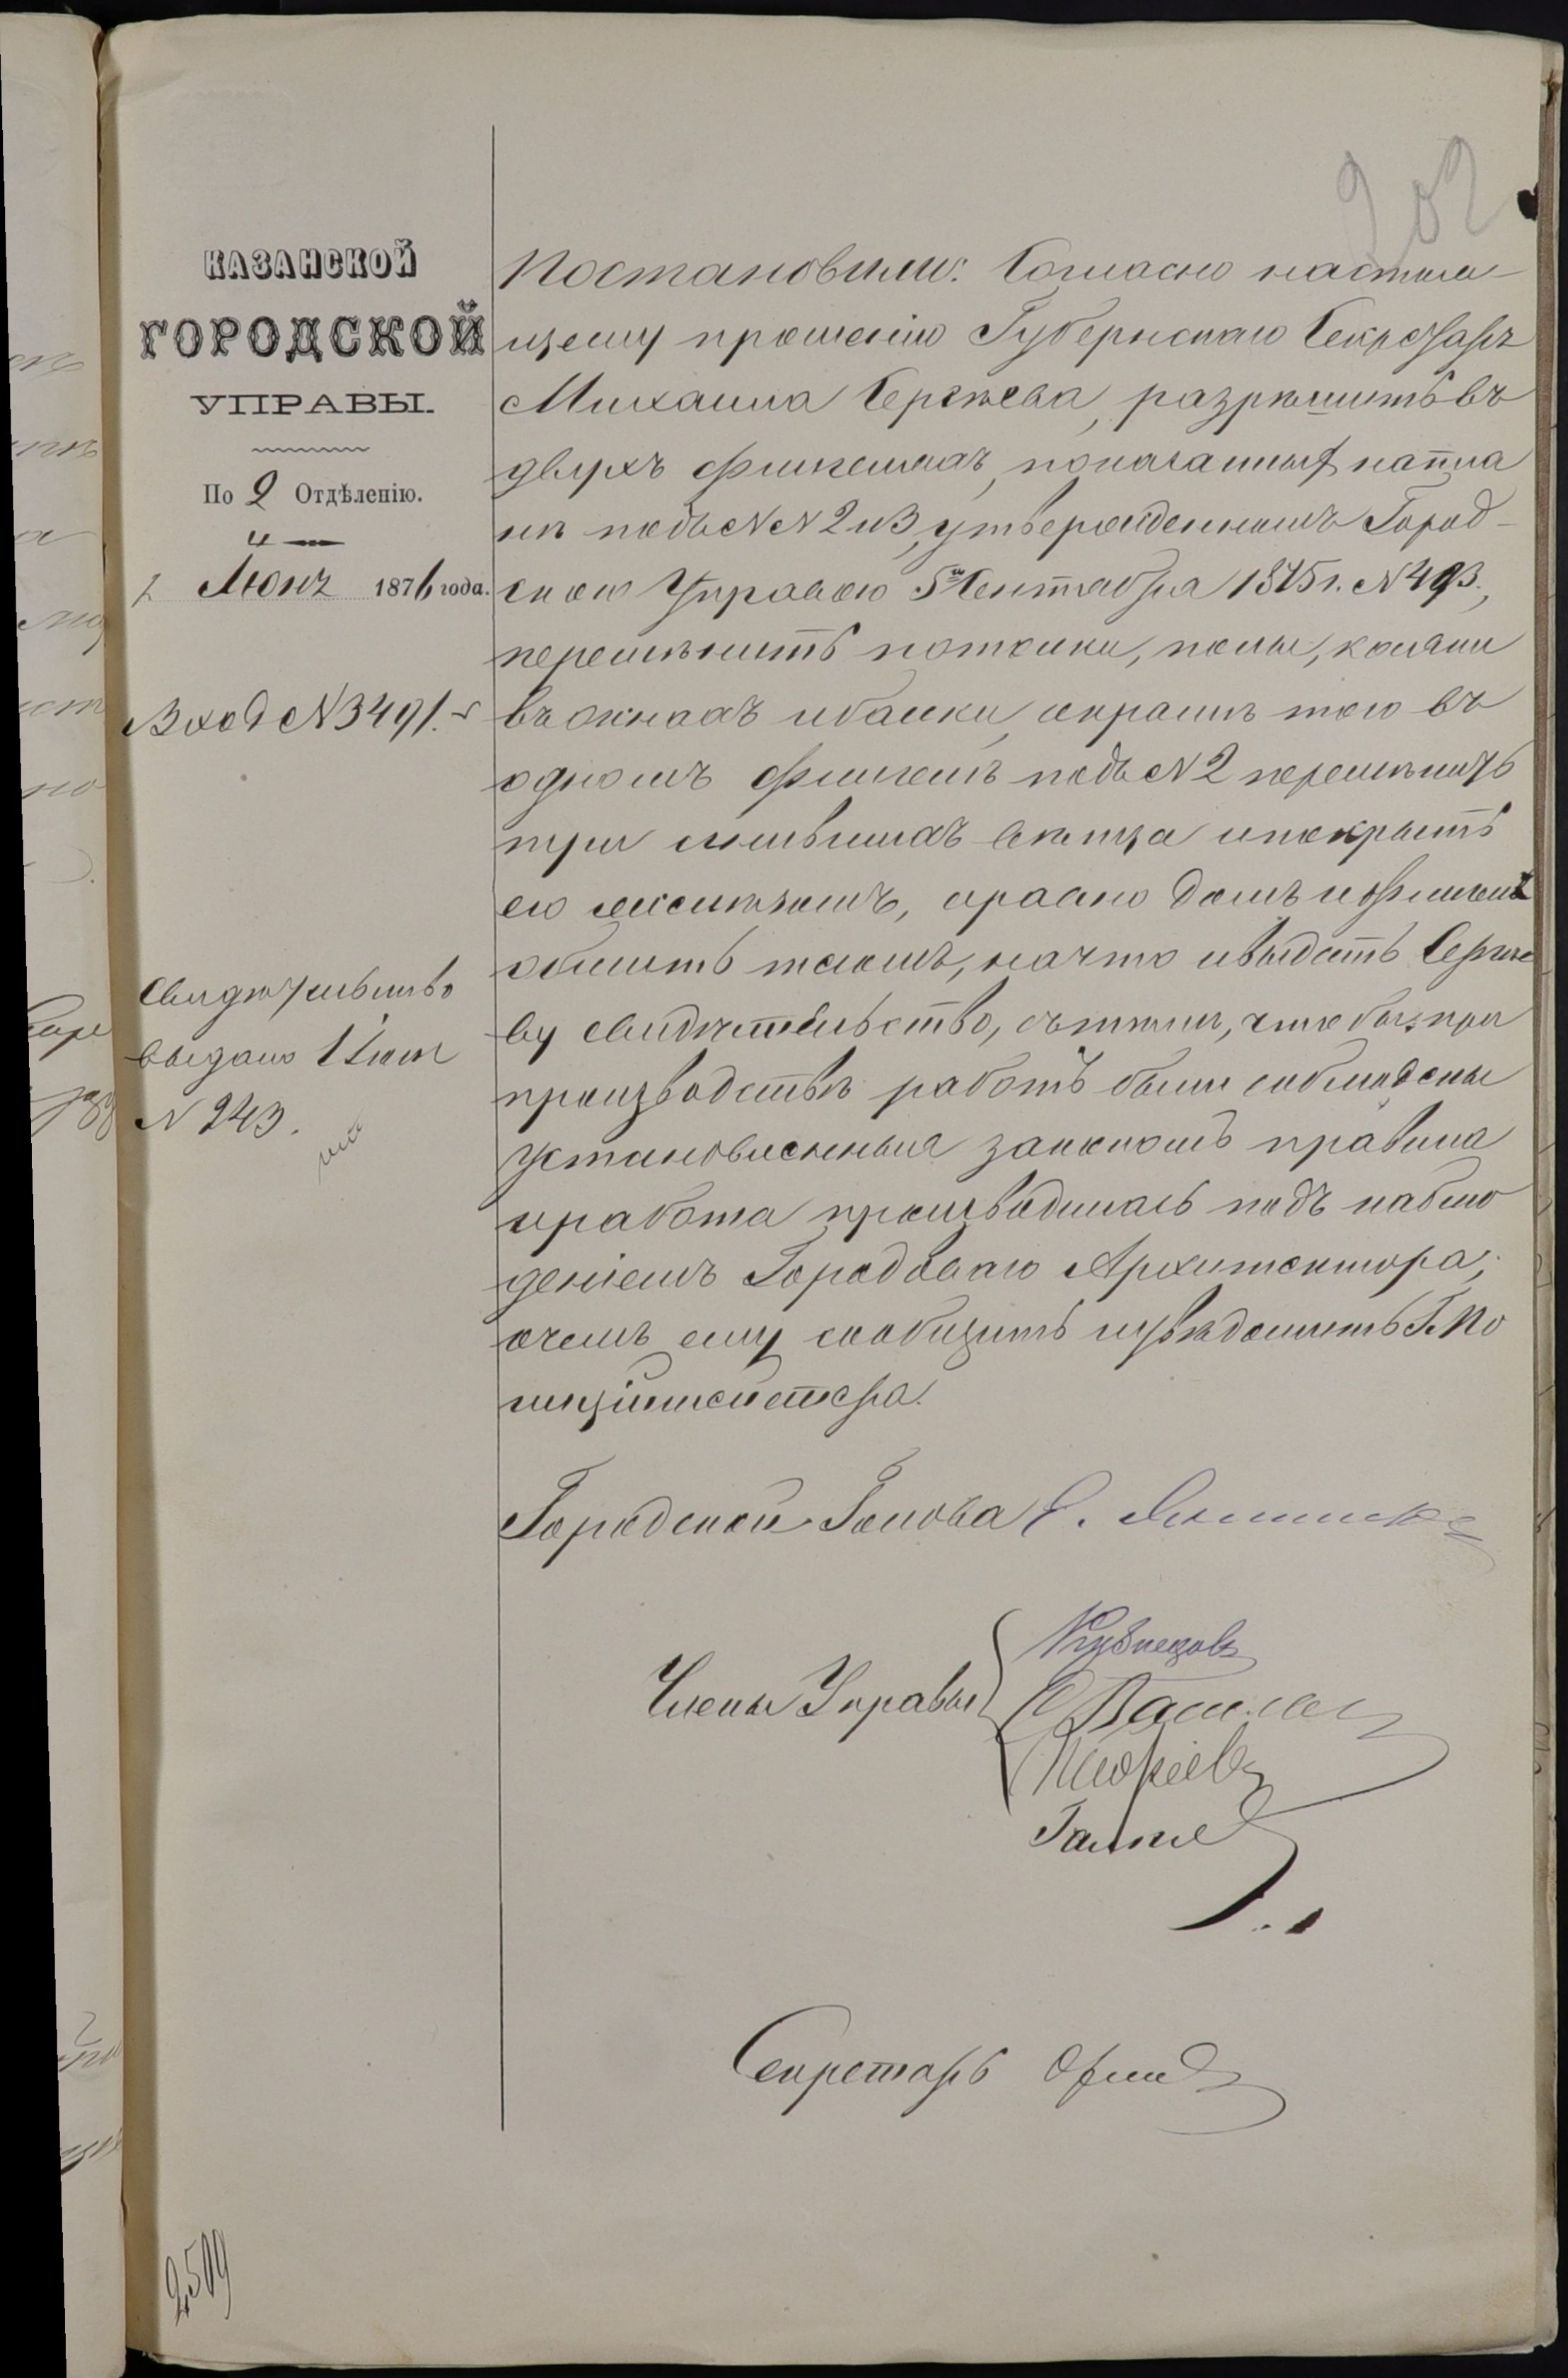 202
КАЗАНСКОЙ
ГОРОДСКОЙ
УПРАВЫ.
По 2 Отдѣленію.
1 Іюня 1876 года.
Вход N 3491.
Свидѣтельство
выдано 1 Іюня
N 243.
Постановили: Согласно настоя-
щему прошенію Губернскаго Секретаря
Михаила Сергѣева, разрѣшить въ
двухъ флигеляхъ, показанныхъ на пла
нѣ подъ N N 2 и 3, утвержденномъ Город-
скою Управою 5 Сентября 1875 г. N 493.,
перемѣнить потолки, полы, косяки
въ окнахъ и балки, и кромѣ того въ
одномъ флигелѣ подъ N 2 перемѣнить
три сгнившихъ вѣнца и покрыть
его желѣзомъ, а равно домъ и флигель
обшить тесомъ, на что и выдать Сергѣе
ву свидѣтельство, съ тѣмъ, что бы при
производствѣ работъ были соблюдены
установленныя закономъ правила
и работа производилась подъ наблю
деніемъ Городоваго Архитектора,
о чемъ ему сообщить и увѣдомить Г. По
лиціймейстера.
Городской Голова
Члены Управы
Кузнецовъ
Секретарь
2509